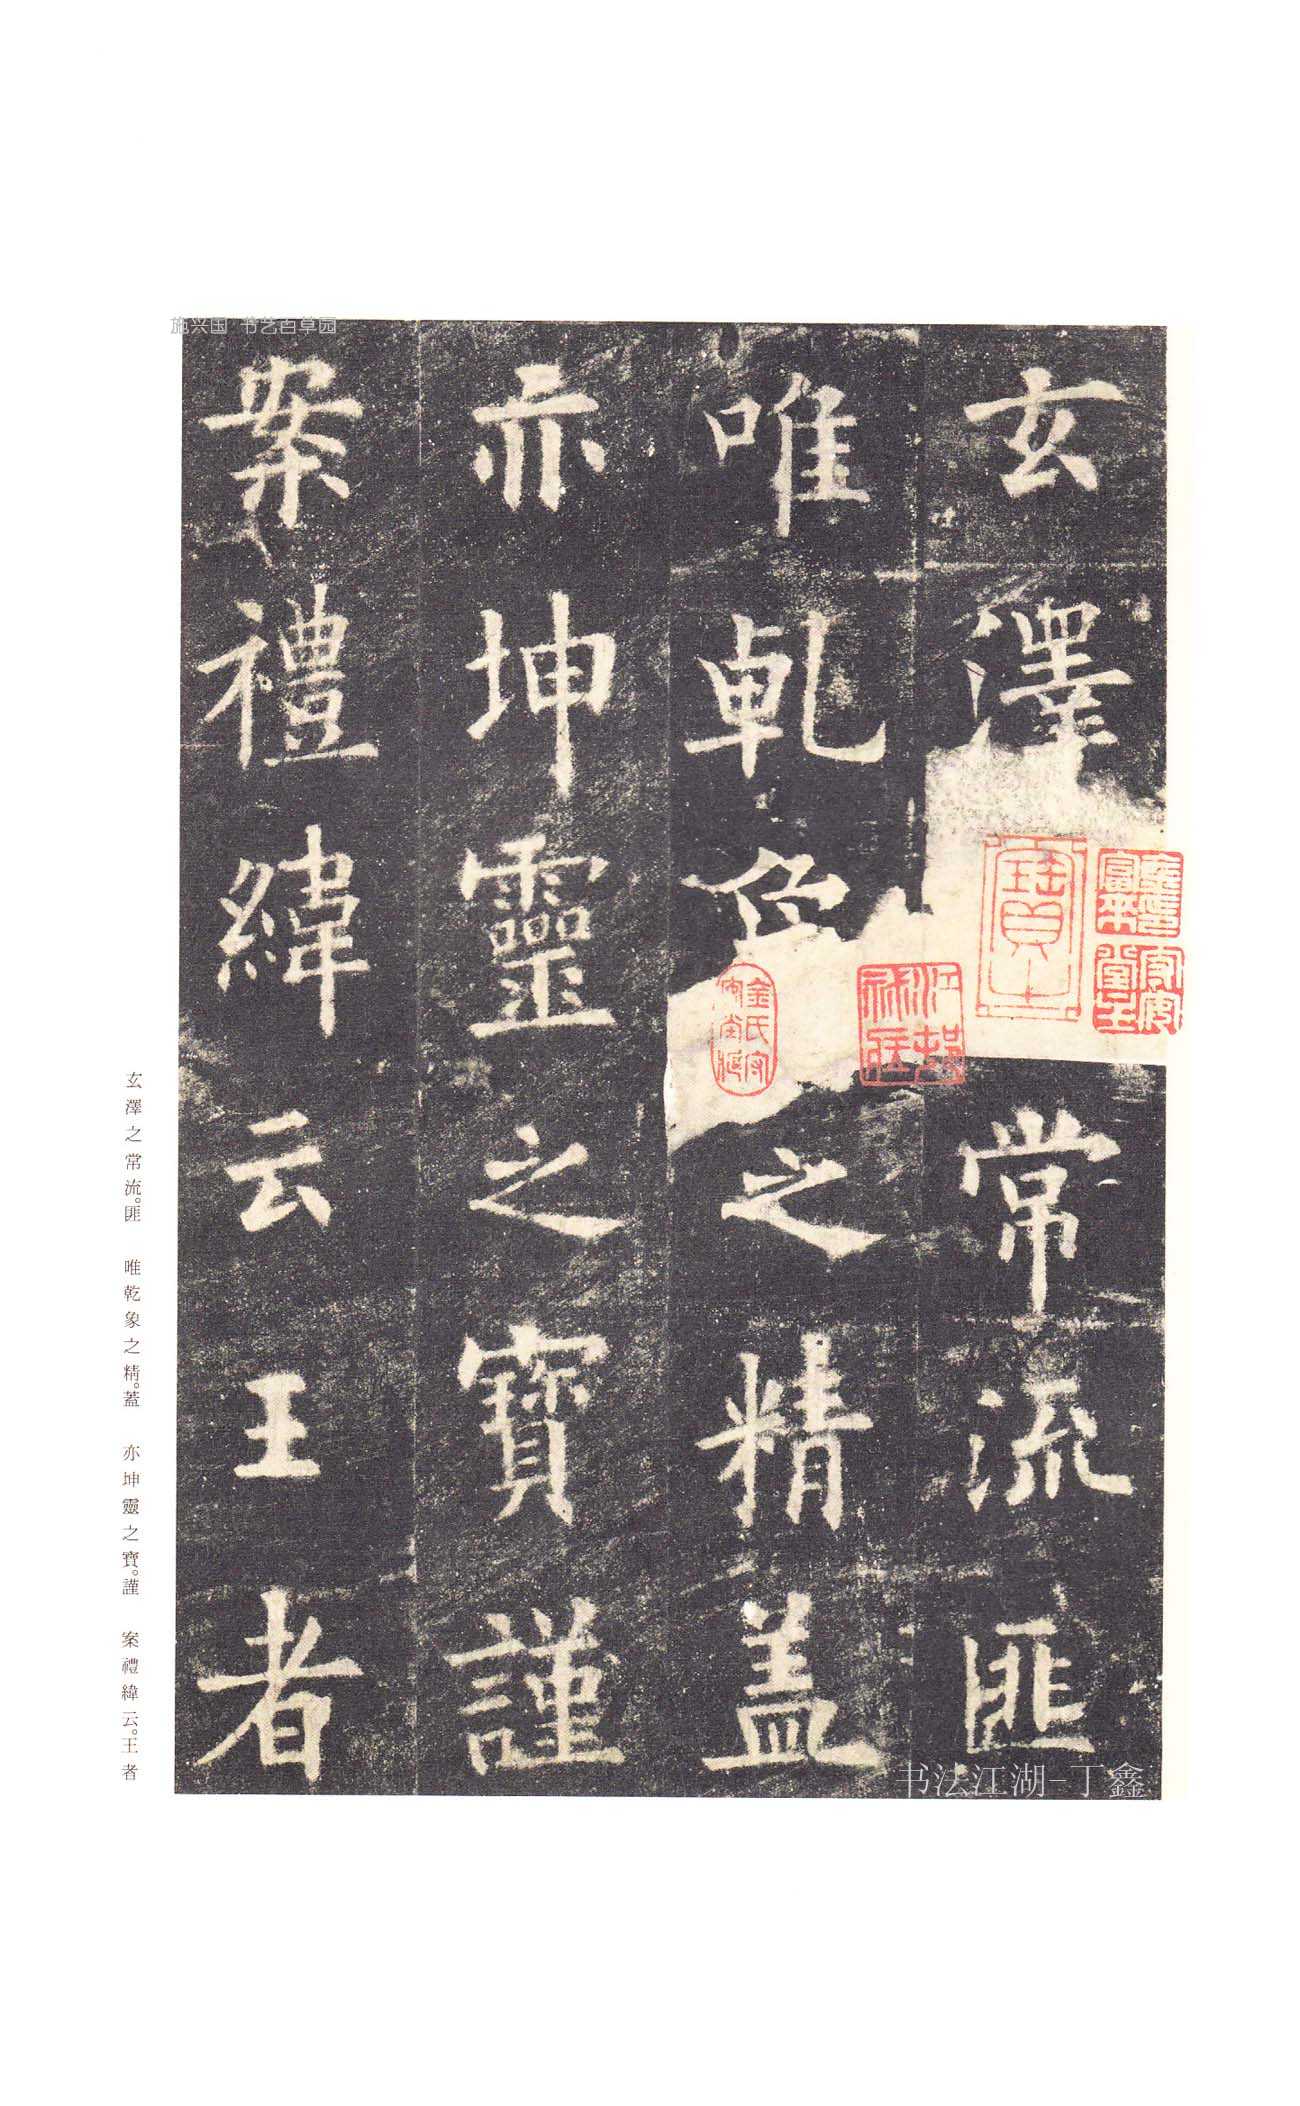 玄澤常流匪
唯乹象之精盖
亦坤靈之寶謹
案禮緯云王者
玄澤之常流。匪 唯乾象之精。蓋 亦坤靈之寶。謹 案禮緯云。王者
施兴国 书艺百草园
书法江湖-丁鑫